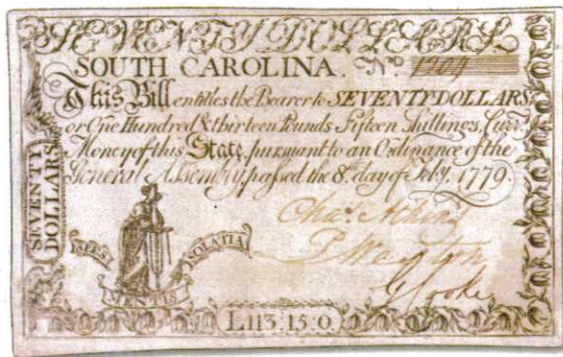 SEVENTY DOLLARS
SOUTH CAROLINA. No.
This Bill entitles the Bearer to SEVENTY DOLLARS,
or One Hundred & thirteen Pounds Fifteen Shillings, Curr.
Money of this State, pursuant to an Ordinance of the
General Assembly, passed the 8th day of Feby. 1779.
SEVENTY
DOLLARS
Chas. Atkins
G Cooke
SPES
MENTIS
SOLATIA
L113:15:0